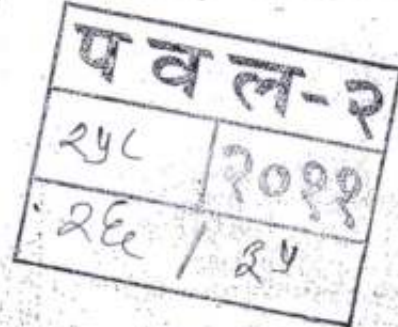 पवल-२
२५८ २०११
२६ / ३५